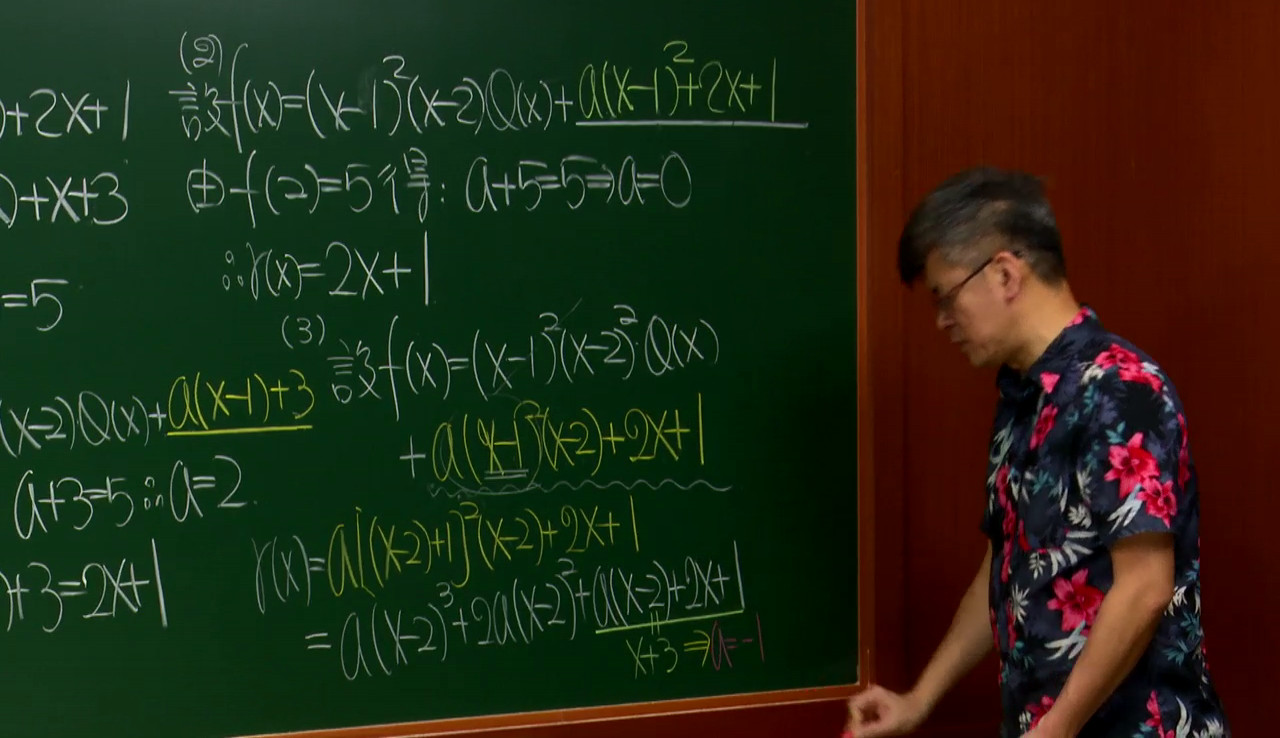 )+2x+1
)+x+3
=5
(x-2)Q(x)+a(x-1)+3
a+3=5∴a=2
)+3=2x+1
(2)
設f(x)=(x-1)²(x-2)Q(x)+a(x-1)²+2x+1
由f(2)=5得: a+5=5⇒a=0
∴r(x)=2x+1
(3)
設f(x)=(x-1)²(x-2)²Q(x)
+a(x-1)²(x-2)+2x+1
r(x)=a[(x-2)+1]²(x-2)+2x+1
=a(x-2)³+2a(x-2)²+a(x-2)+2x+1
x+3⇒a=-1